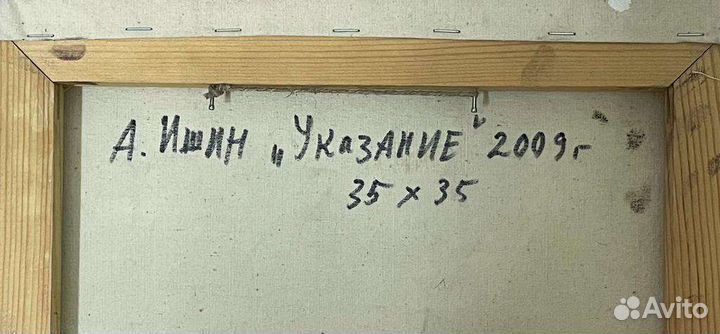 А. Ишин „Указание" 2009 г
35 х 35
Avito